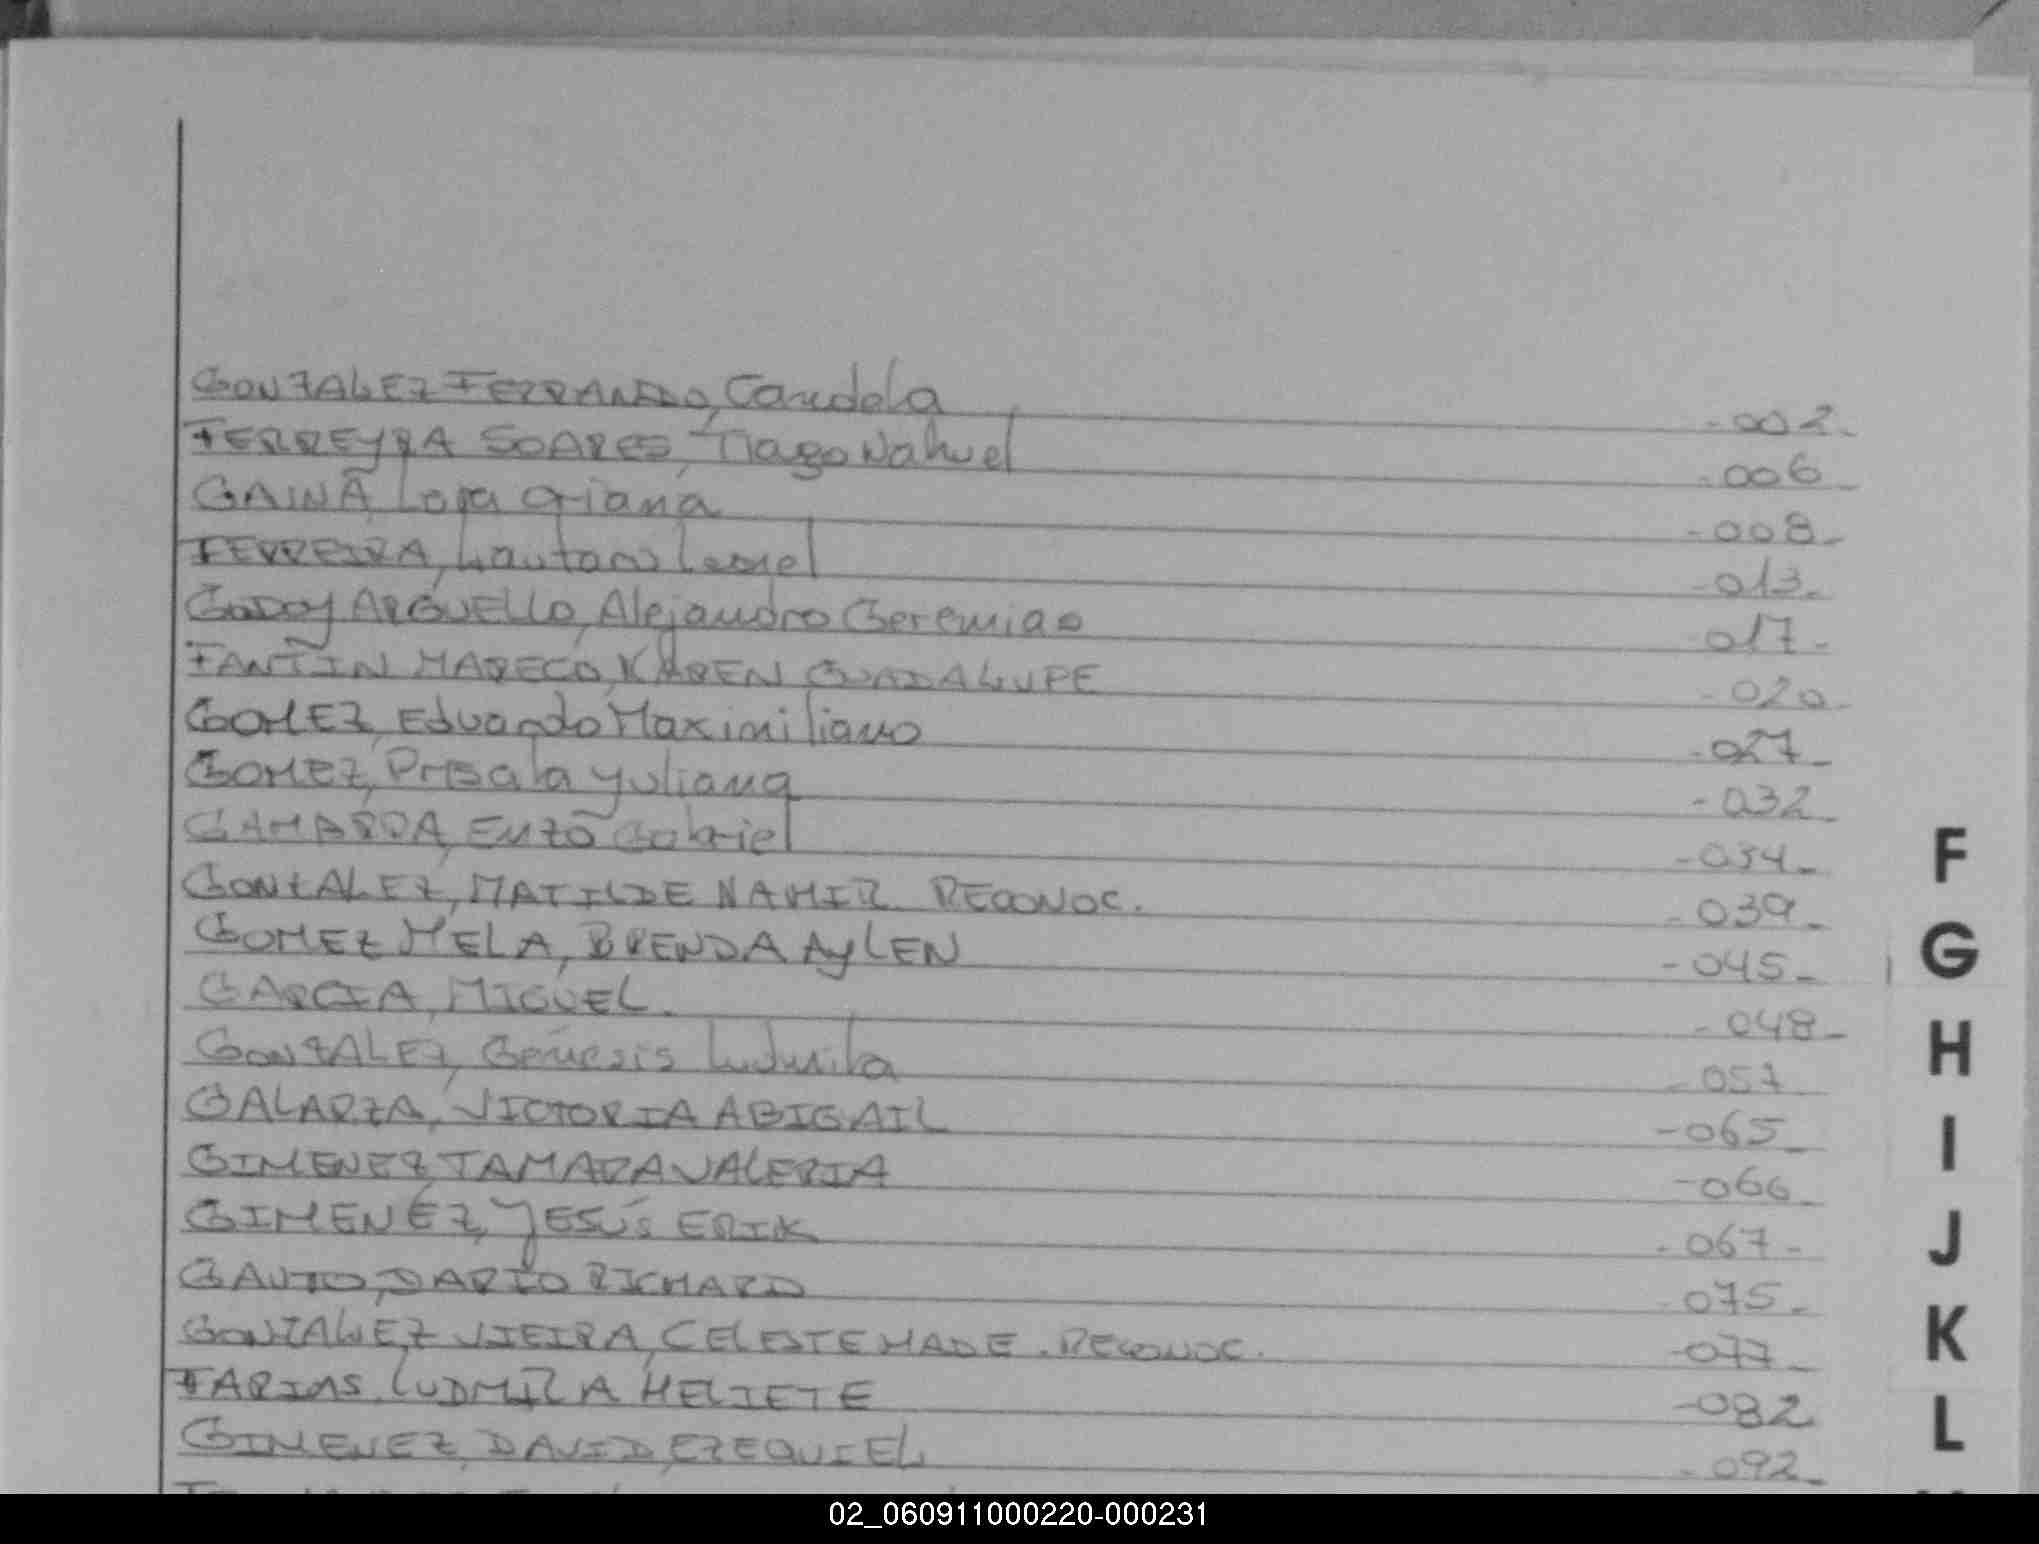 GONZALEZ FERRANDO, Candela -002-
FERREYRA SOARES, Tiago Nahuel -006-
GAINÃ, Lola Oriana -008-
FERREIRA, Lautaro Leonel -013-
GODOY ARGUELLO, Alejandro Geremias 017-
FANTIN MARECO, KAREN GUADALUPE -020-
GOMEZ, Eduardo Maximiliano -027-
GOMEZ, Prisala Yuliana -032-
GAMARRA, Enzo Gabriel -034-
GONZALEZ, MATILDE NAHIR RECONOC. -039-
GOMEZ MELA, BRENDA AYLEN -045-
GARCIA, MIGUEL. -048-
GONZALEZ, Génesis Ludmila -057
GALARZA, VICTORIA ABIGAIL -065-
GIMENEZ TAMARA VALERIA -066-
GIMENEZ, JESÚS ERIK -067-
GAUTO, DARIO RICHARD 075-
GONZALEZ VIEIRA, CELESTE MADE. RECONOC. -077-
FARIAS, LUDMILA HELIETE -082
GIMENEZ, DAVID EZEQUIEL -092-
F
G
H
I
J
K
L
02_060911000220-000231